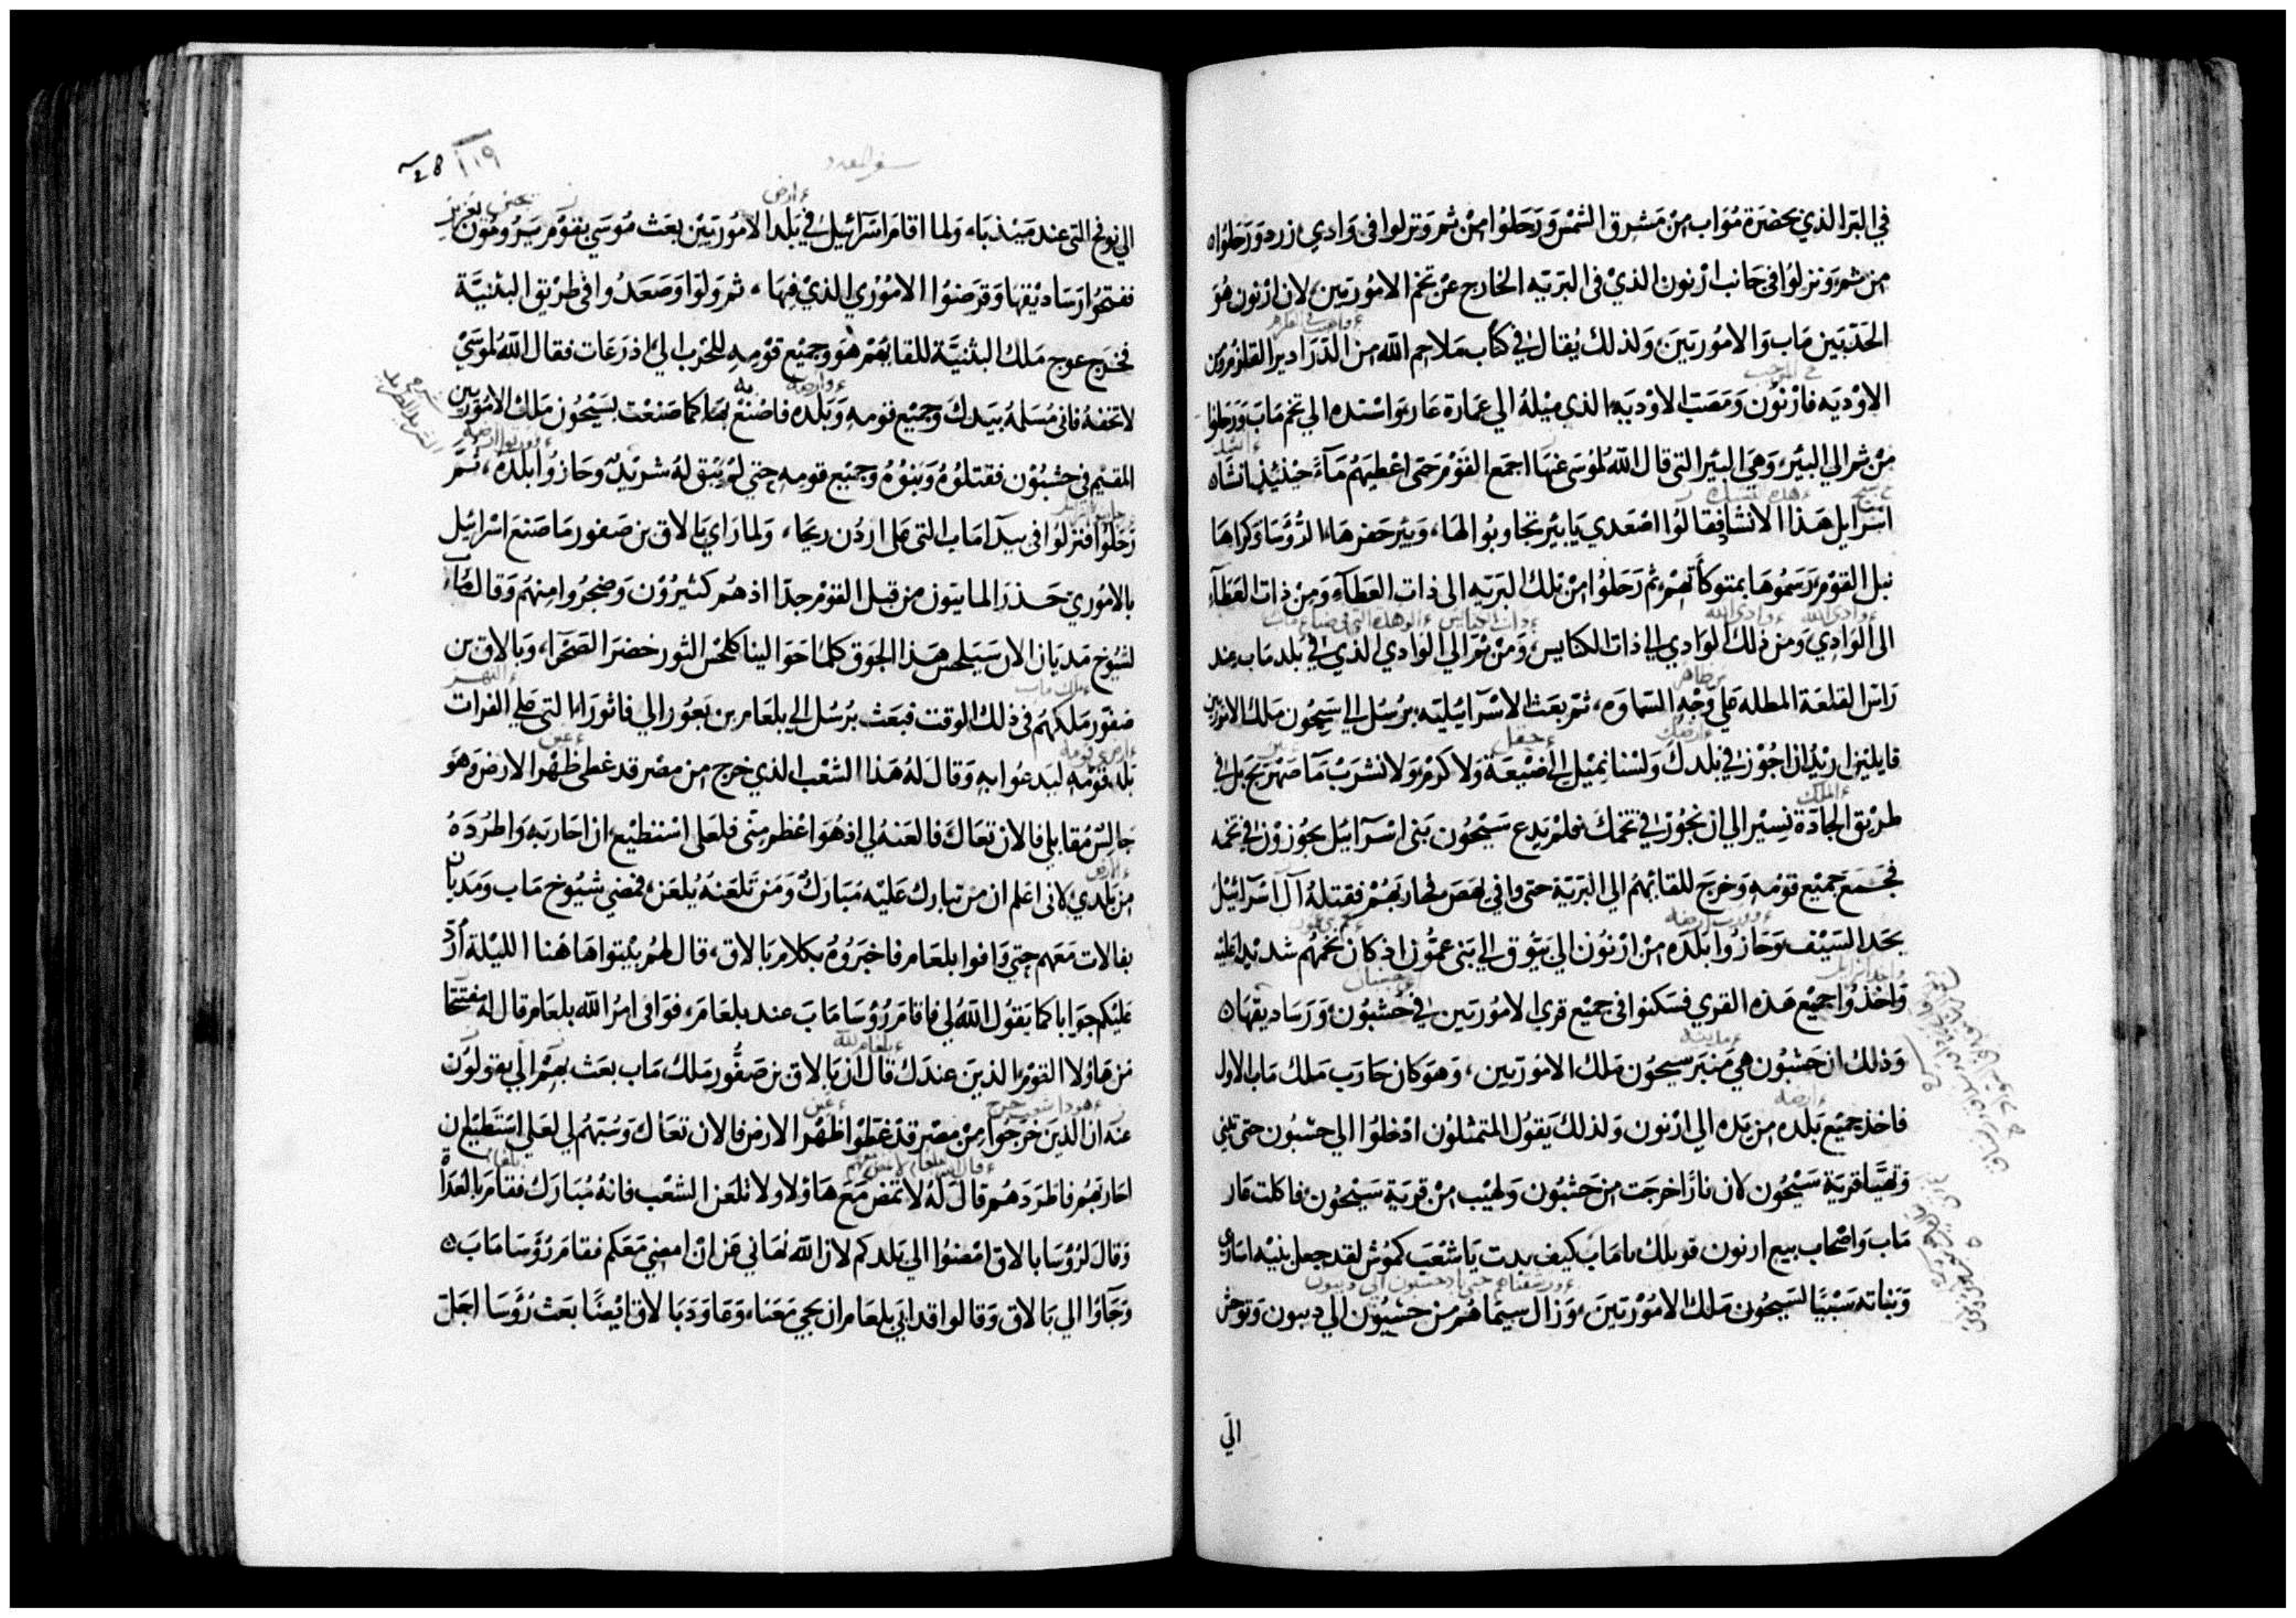 في البر الذي بحضرة مؤاب من مشرق الشمس ورحلوا من ثم ونزلوا في وادي زرد ورحلوا
من ثم ونزلوا في جانب ارنون الذي في البريه الخارج عن تخم الاموريين لان ارنون هو
الحد بين ماب والاموريين ولذلك يقال في كتاب ملاحم الله من
الاوديه فارنون ومصب الاوديه الذي ميله الي عمارة عار واستده الي تخم ماب ورحلوا
من ثم الي البير وهي البير التي قال الله لموسى عنها اجمع القوم حتى اعطيهم ماء حينئذ انشاء
اسرايل هذا الانشا فقالوا اصعدي يا بير تجاوبوا لها وبير حفرها الرؤسا وكراها
نبل القوم رسموها بمتوكأتهم ثم رحلوا من تلك البريه الى ذات العطاء ومن ذات العطاء
الى الوادي ومن ذلك الوادي الي ذات الكنايس ومن ثم الي الوادي الذي في بلد ماب عند
راس القلعة المطله علي وجه السماوه ثم بعث الاسراييليه برسل الي سيحون ملك الاموريين
قايلين اريد ان اجوز في بلدك ولسنا نميل الي ضيعة ولا كرم ولا نشرب ما صهريج بل في
طريق الجادة نسير الي ان نجوز في تخمك فلم يدع سيحون بني اسرآئيل يجوزون في تخمه
فجمع جميع قومه وخرج للقايهم الي البرية حتى وافي يهص فحاربهم فقتله آل اسرائيل
بحد السيف وحازوا بلده من ارنون الي يبوق الي بني عمون اذ كان تخمهم شديدا عليه
واخذوا جميع هذه القري فسكنوا في جميع قري الاموريين في حشبون ورساديقها
وذلك ان حشبون هي منبر سيحون ملك الاموريين وهو كان حارب ملك ماب الاول
فاخذ جميع بلده من يده الي ارنون ولذلك يقول المتمثلون ادخلوا الي حشبون حتى تبني
وتهيّا قرية سيحون لان نارا خرجت من حشبون ولهيب من قرية سيحون فاكلت عار
ماب واصحاب بيع ارنون فويلك يا ماب كيف بدت يا شعب كموش لقد جعل بنيه
وبناته سبيا لسيحون ملك الاموريين وزال سيماهم من حشبون الي ديبون وتوحش
الي
سفر العدد
١١٩
28
الي نوفح التي عند ميدبا ولما اقام اسرآئيل في بلد الاموريين بعث موسي بقوم يرومون
ففتحوا رساديقها وقرضوا الاموري الذي فيها ثم ولوا وصعدوا في طريق البثنية
فخرج عوج ملك البثنية للقايهم هو وجميع قومه للحرب الي اذرعات فقال الله لموسي
لا تخفه فاني مسلمه بيدك وجميع قومه وبلده فاصنع بها كما صنعت بسيحون ملك الاموريين
المقيم في حشبون فقتلوه وبنوه وجميع قومه حتي لم يبق له شريد وحازوا بلده ثم
رحلوا فنزلوا في بيدآ ماب التي علي اردن ريحا ولما راي بالاق بن صفور ما صنع اسرائيل
بالاموري حذر المابيون من قبل القوم جدا اذ هم كثيرون وضجروا منهم وقال ماب
لشيوخ مديان الان سيلحس هذا الجوق كلما حوالينا كلحس الثور خضر الصحرا وبالاق بن
صفور ملكهم في ذلك الوقت فبعث برسل الي بلعام بن بعور الي فاثورا التي علي الفرات
بلد قومه ليدعوا به وقال له هذا الشعب الذي خرج من مصر قد غطي ظهر الارض وهو
جالس مقابلي فالان تعال فالعنه لي اذ هو اعظم مني فلعلي استطيع ان احاربه واطرده
من بلدي لاني اعلم ان من تبارك عليه مبارك ومن تلعنه يلعن فمضي شيوخ ماب ومديان
بفالات معهم حتي وافوا بلعام فاخبروه بكلام بالاق قال لهم بيتوا هاهنا الليلة ارد
عليكم جوابا كما يقول الله لي فاقام رؤسا ماب عند بلعام فوافي امر الله بلعام قال له مفتتحا
من هاولا القوم الذين عندك قال ان بالاق بن صفور ملك ماب بعث بهم الي يقولون
عنه ان الذين خرجوا من مصر قد غطوا ظهر الارض فالان تعال وسبهم لي لعلي استطيع ان
احاربهم فاطردهم قال له لا تمض مع هاولا ولا تلعن الشعب فانه مبارك فقام بالغداة
وقال لرؤسا بالاق امضوا الي بلدكم لان الله نهاني عن ان امضي معكم فقام رؤسا ماب
وجاؤا الي بالاق وقالوا قد ابي بلعام ان يجي معنا وعاود بالاق ايضًا بعث رؤسا اجل